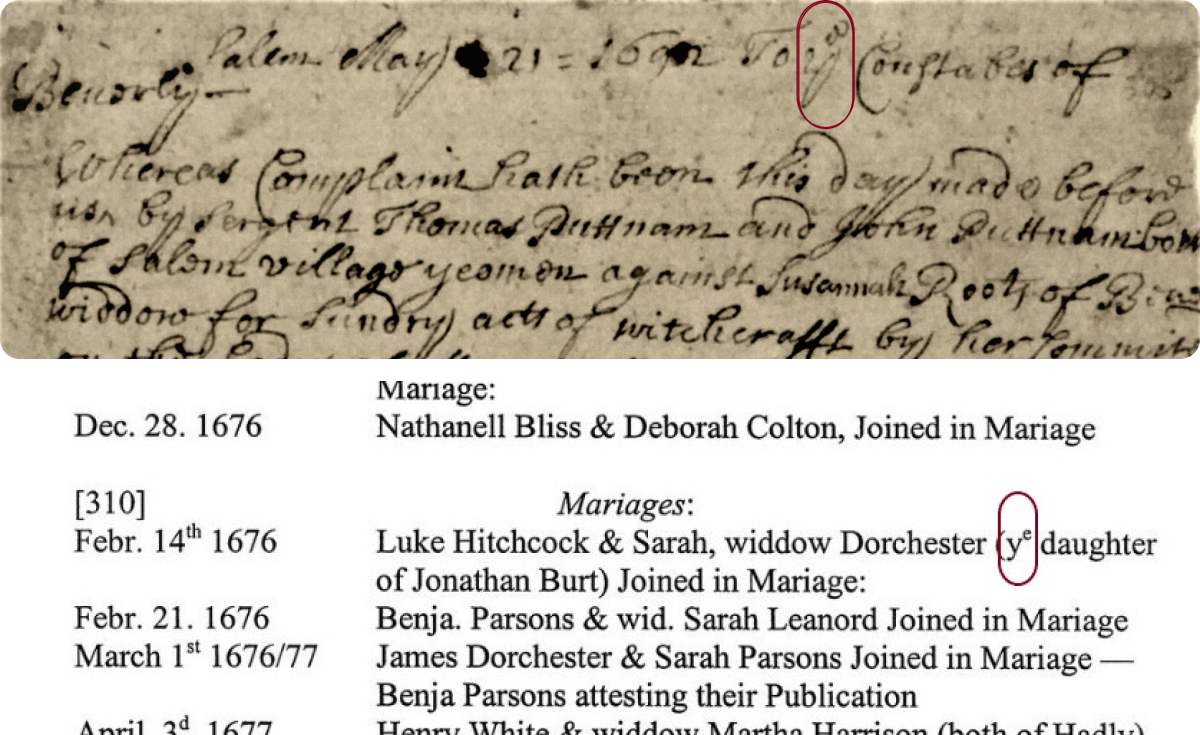 Salem May 21 = 1692 To yᵉ Constabes of
Beuerly —
Whereas Complaint hath been this day made before
us, by Sergent Thomas Puttnam and John Puttnam both
of Salem village yeomen against Susannah Roots of Beu
widdow for Sundry acts of witchcrafft by her Committ
Mariage:
Dec. 28. 1676 Nathanell Bliss & Deborah Colton, Joined in Mariage
[310] Mariages:
Febr. 14ᵗʰ 1676 Luke Hitchcock & Sarah, widdow Dorchester (yᵉ daughter
of Jonathan Burt) Joined in Mariage:
Febr. 21. 1676 Benja. Parsons & wid. Sarah Leanord Joined in Mariage
March 1ˢᵗ 1676/77 James Dorchester & Sarah Parsons Joined in Mariage —
Benja Parsons attesting their Publication
April 3ᵈ 1677 Henry White & widdow Martha Harrison (both of Hadly)